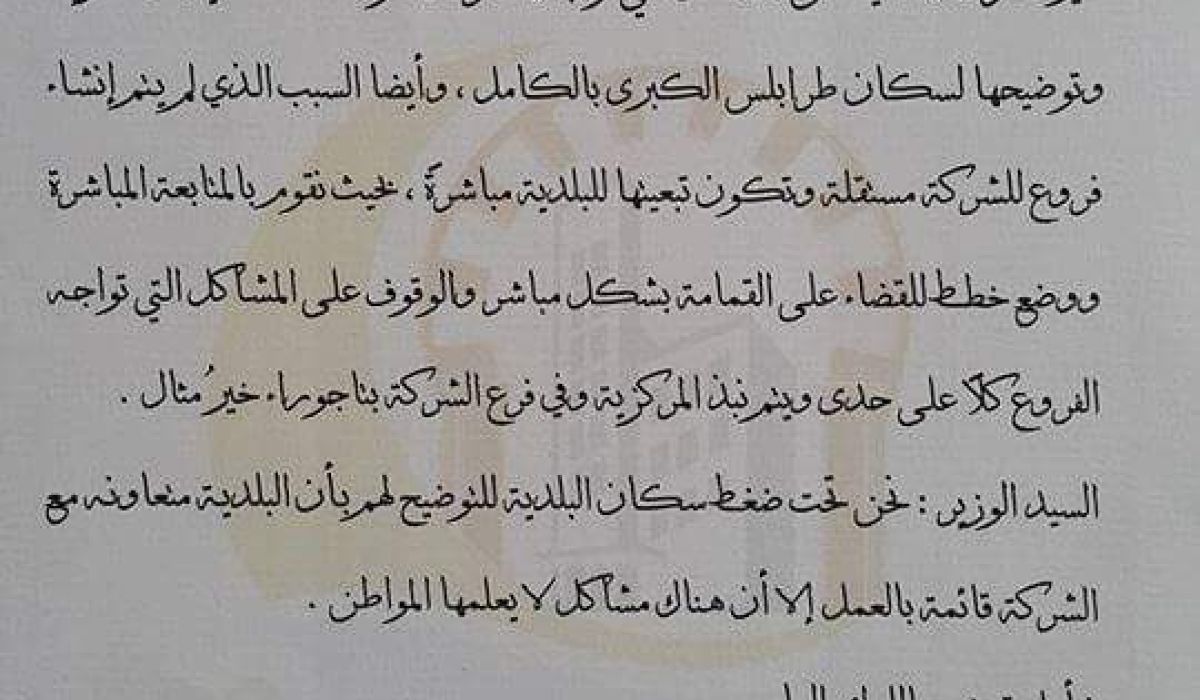 وتوضيحها لسكان طرابلس الكبرى بالكامل ، وأيضا السبب الذي لم يتم إنشاء
فروع للشركة مستقلة وتكون تبعيتها للبلدية مباشرةً ، بحيث نقوم بالمتابعة المباشرة
ووضع خطط للقضاء على القمامة بشكل مباشر والوقوف على المشاكل التي تواجه
الفروع كلًا على حدى ويتم نبذ المركزية وفي فرع الشركة بتاجوراء خيرُ مثال .
السيد الوزير : نحن تحت ضغط سكان البلدية للتوضيح لهم بأن البلدية متعاونه مع
الشركة قائمة بالعمل إلا أن هناك مشاكل لا يعلمها المواطن .